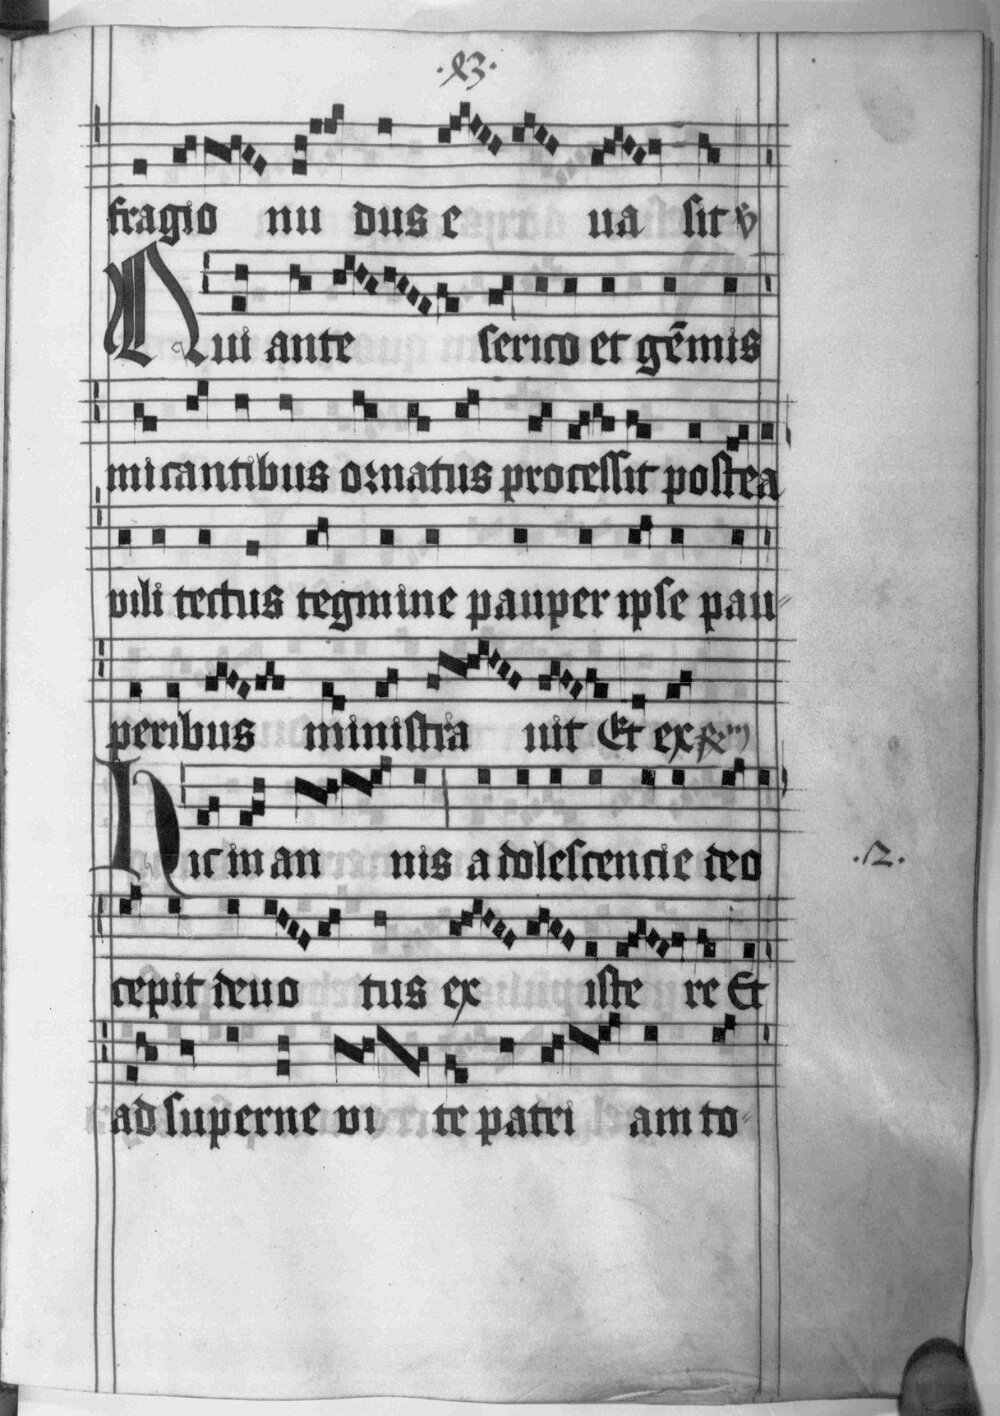 fragio nu dus e ua sit v
Qui ante serico et gēmis
micantibus ornatus processit postea
vili tectus tegmine pauper ipse pau
peribus ministra uit Et ex
Hic in an nis adolescencie deo
.12.
cepit deuo tus ex iste re Et
ad superne vi te patri am to